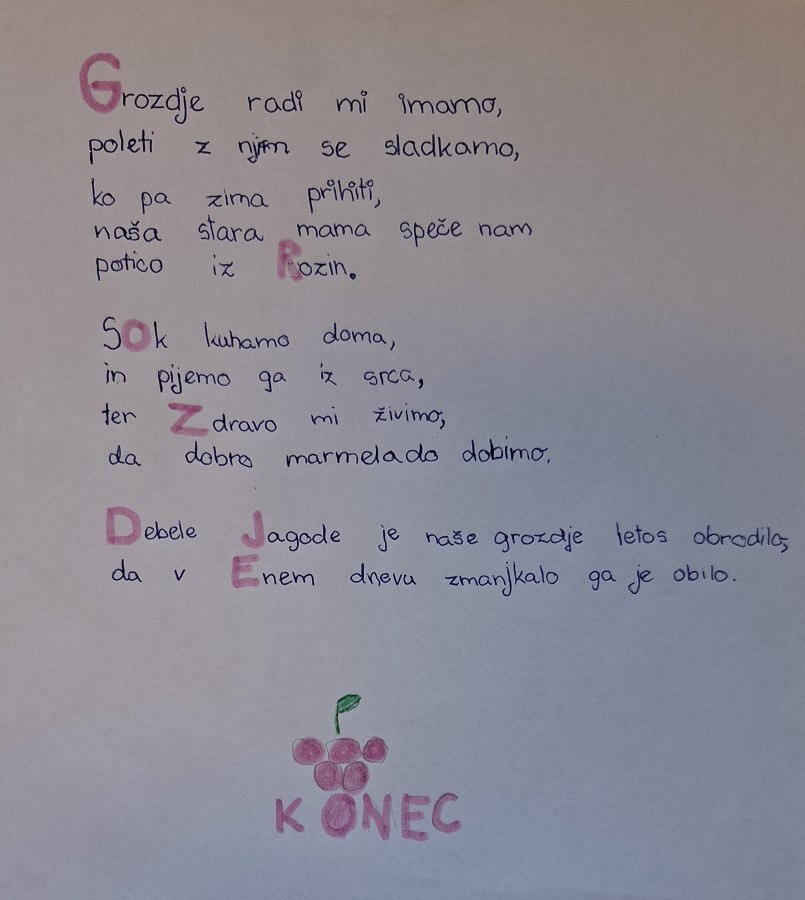 Grozdje radi mi imamo,
poleti z njim se sladkamo,
ko pa zima prihiti,
naša stara mama speče nam
potico iz Rozin.
SOk kuhamo doma,
in pijemo ga iz srca,
ter Zdravo mi živimo,
da dobro marmelado dobimo.
Debele Jagode je naše grozdje letos obrodilo,
da v Enem dnevu zmanjkalo ga je obilo.
KONEC